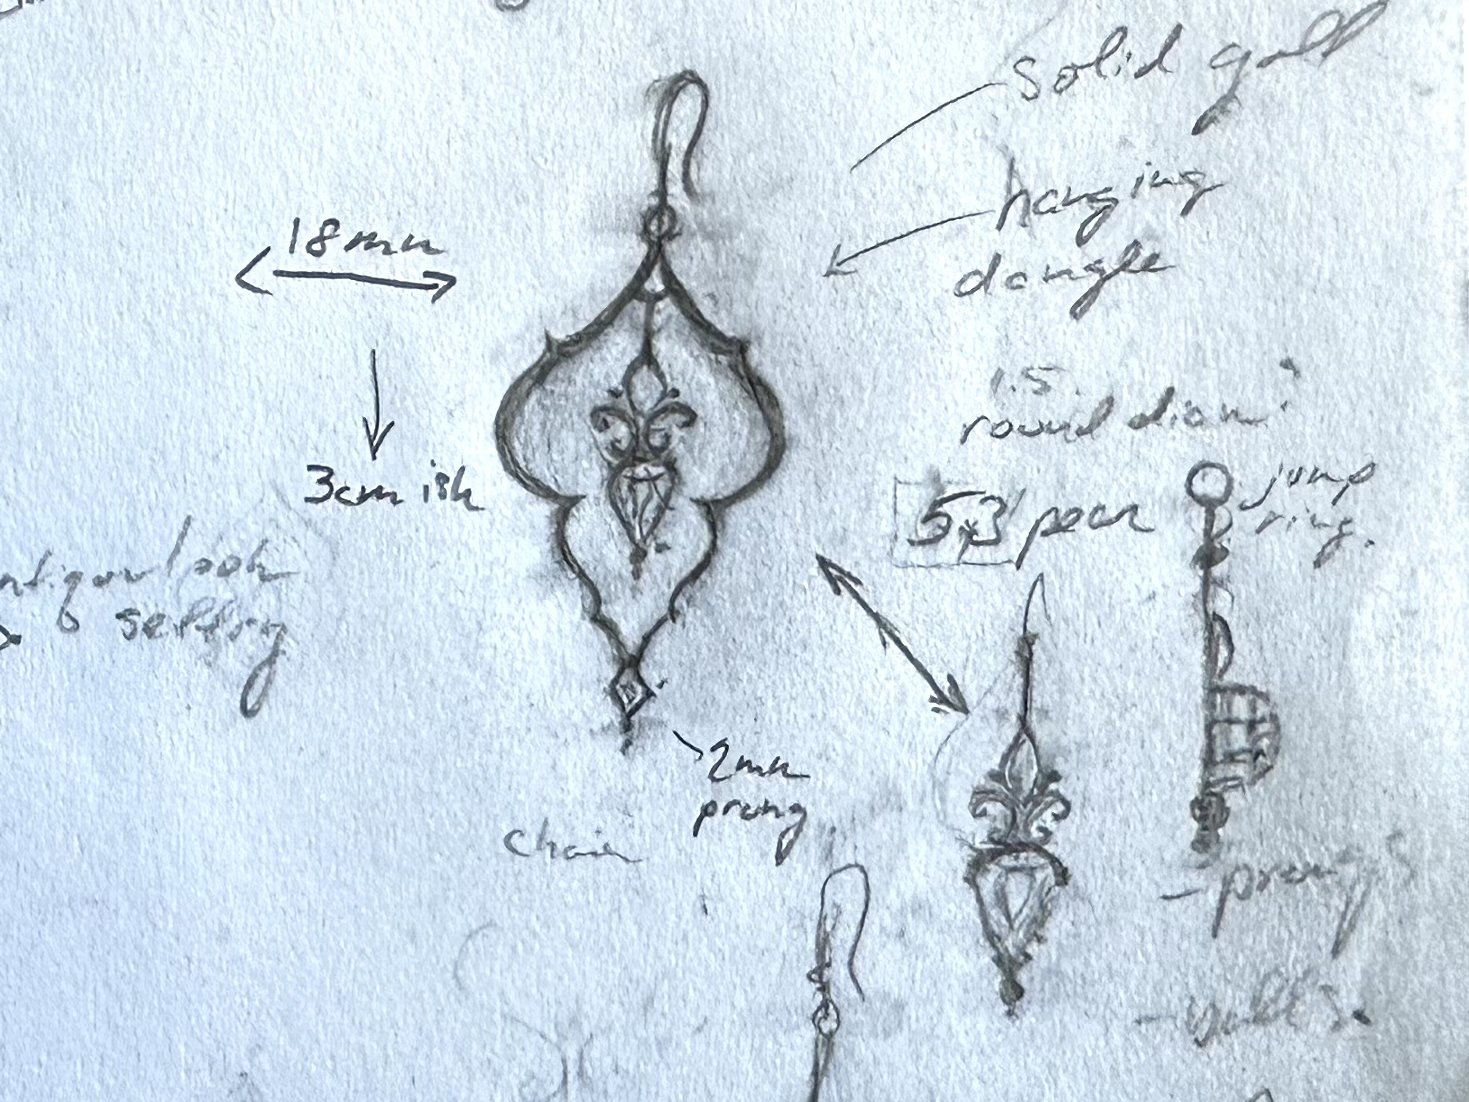 solid gold
hanging
dangle
18mm
3cm ish
1.5
round diam
5x3 pear
jump
ring.
look
setting
2mm
prong
chain
- prongs